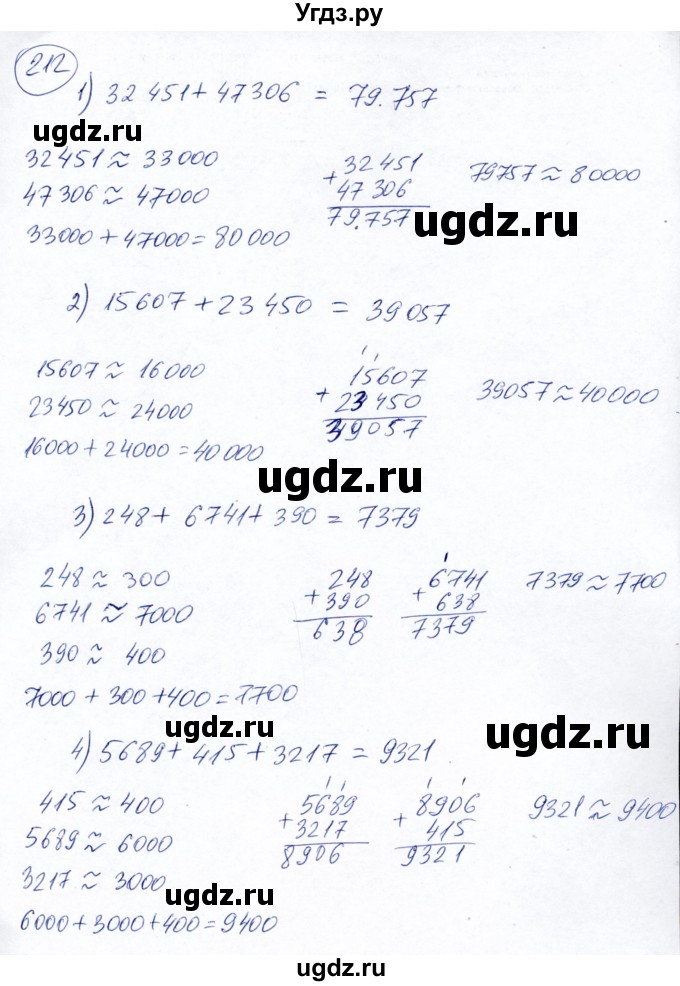 Угдз.ру
212
1) 32 451 + 47 306 = 79.757
ugdz.ru
32451 ≈ 33000
47306 ≈ 47000
33000 + 47000 = 80000
+ 32451
47306
79.757
79757 ≈ 80000
ugdz.ru
2) 15607 + 23450 = 39057
15607 ≈ 16000
23450 ≈ 24000
16000 + 24000 = 40000
' '
+ 15607
23450
39057
39057 ≈ 40000
ugdz.ru
3) 248 + 6741 + 390 = 7379
248 ≈ 300
6741 ≈ 7000
390 ≈ 400
7000 + 300 + 400 = 7700
+ 248
390
638
'
+ 6741
638
7379
7379 ≈ 7700
ugdz.ru
ugdz.ru
4) 5689 + 415 + 3217 = 9321
415 ≈ 400
5689 ≈ 6000
3217 ≈ 3000
6000 + 3000 + 400 = 9400
' '
+ 5689
3217
8906
' '
+ 8906
415
9321
9321 ≈ 9400
ugdz.ru
ugdz.ru